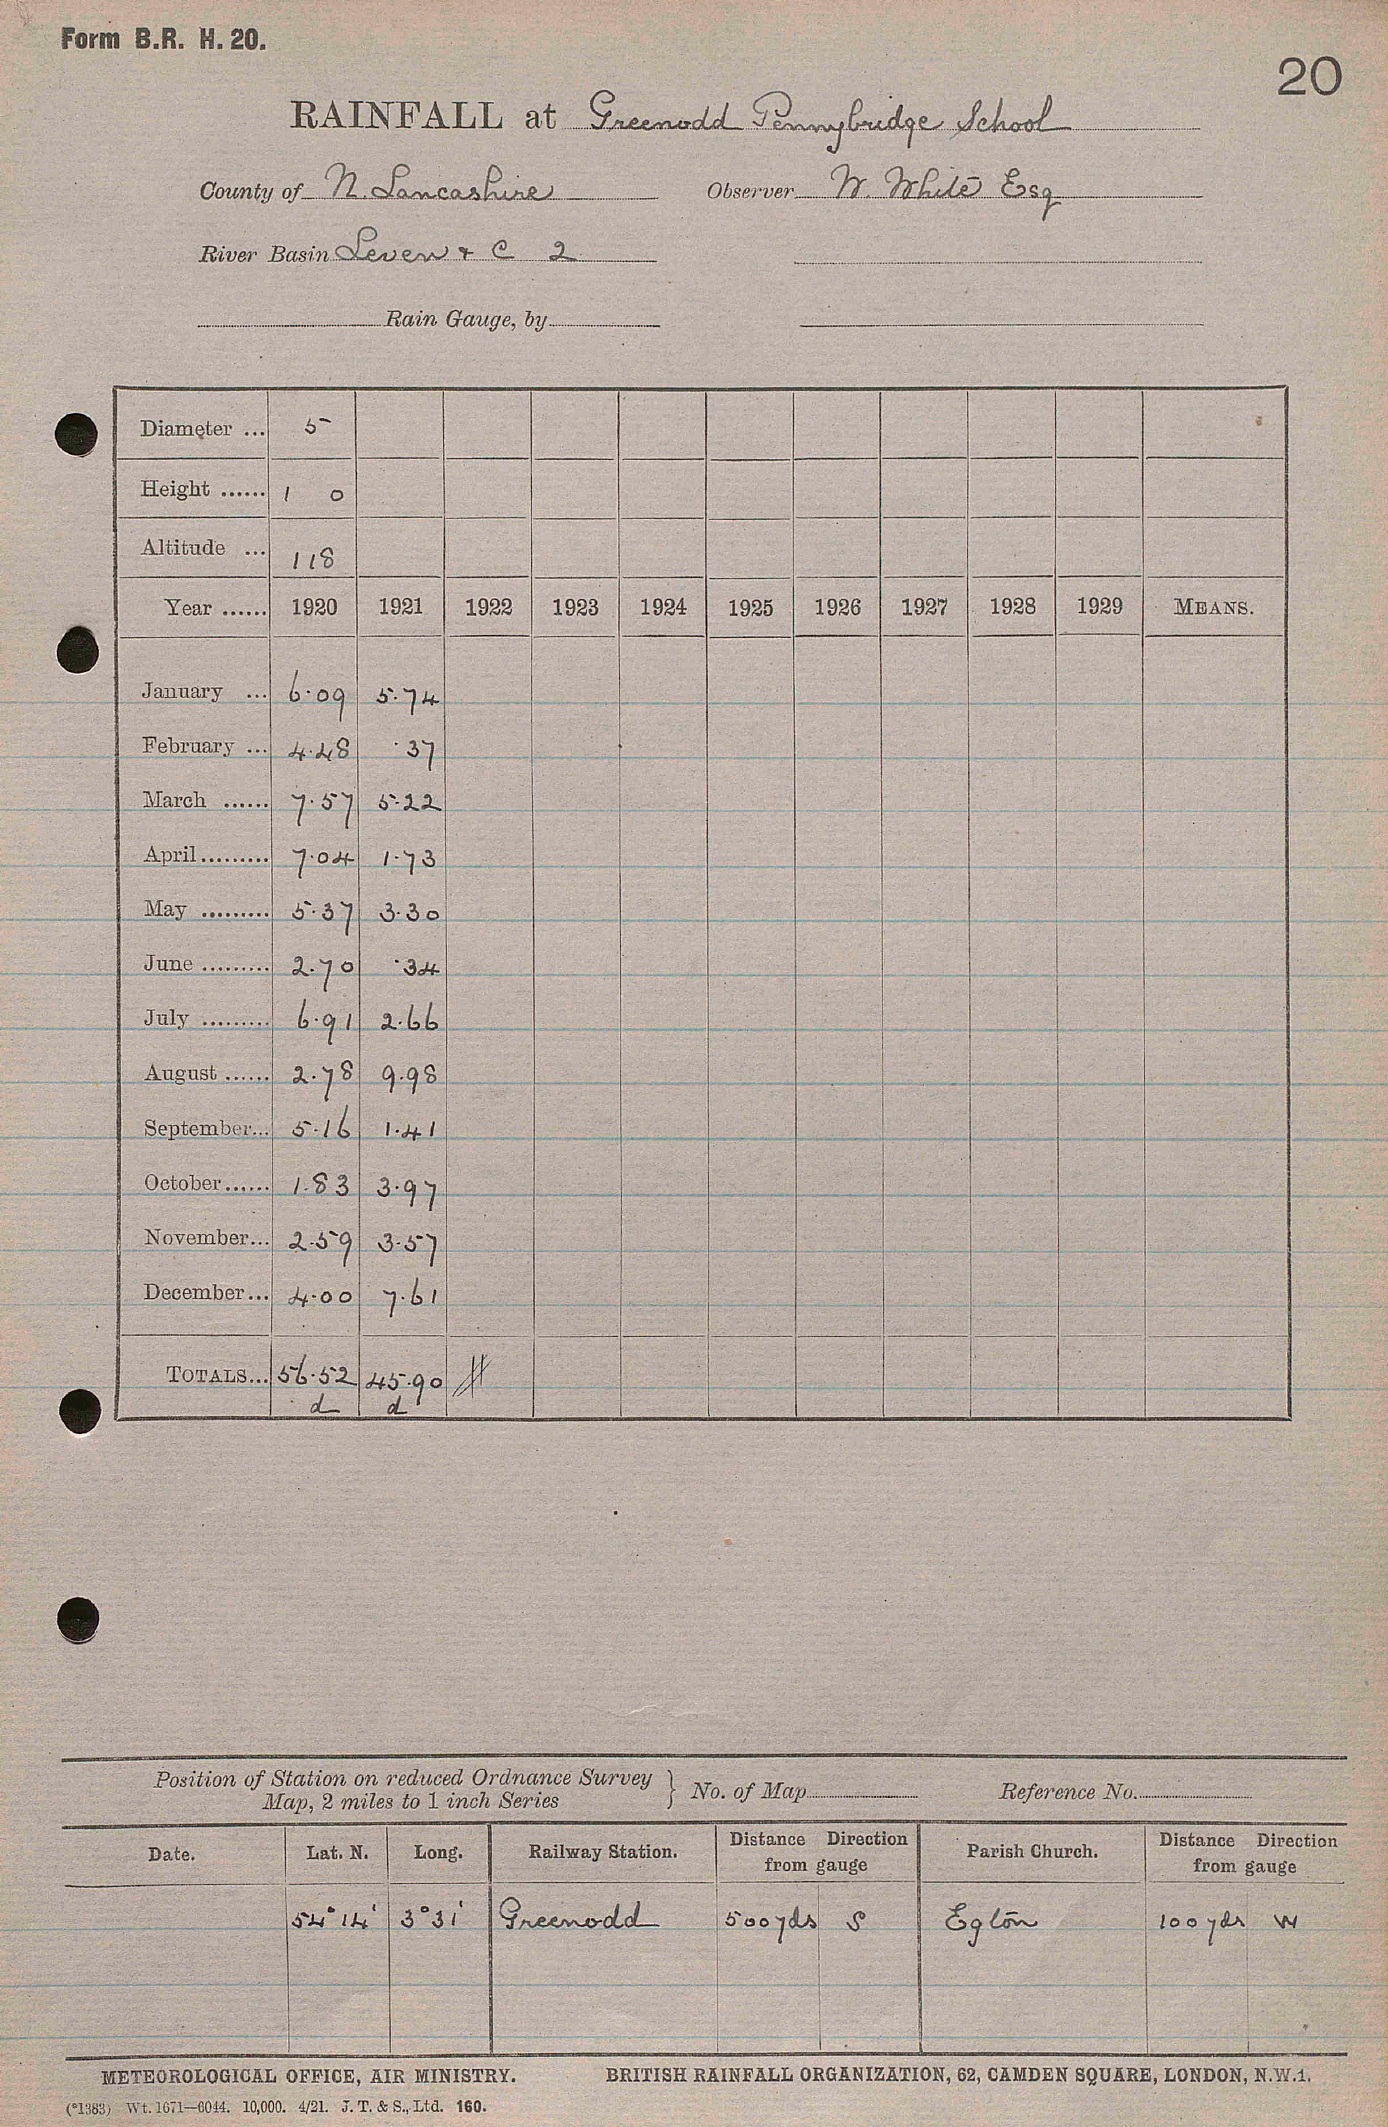 Form B.R. H. 20.
20
RAINFALL at Greenodd Pennybridge School
County of N. Lancashire Observer W. White Esq
River Basin Leven & C 2
Rain Gauge, by
Diameter ... 5
Height ...... 1 0
Altitude ... 118
Year ...... 1920 1921 1922 1923 1924 1925 1926 1927 1928 1929 MEANS.
January ... 6.09 5.74
February ... 4.48 .37
March ...... 7.57 5.22
April ......... 7.04 1.73
May ......... 5.37 3.30
June ......... 2.70 .34
July ......... 6.91 2.66
August ...... 2.78 9.98
September... 5.16 1.41
October...... 1.83 3.97
November... 2.59 3.57
December... 4.00 7.61
TOTALS... 56.52 45.90
d d
Position of Station on reduced Ordnance Survey
Map, 2 miles to 1 inch Series } No. of Map Reference No.
Date. Lat. N. Long. Railway Station. Distance Direction from gauge Parish Church. Distance Direction from gauge
54° 14' 3° 31' Greenodd 500 yds S Egton 100 yds W
METEOROLOGICAL OFFICE, AIR MINISTRY. BRITISH RAINFALL ORGANIZATION, 62, CAMDEN SQUARE, LONDON, N.W.1.
(*1383) Wt. 1671—6044. 10,000. 4/21. J. T. & S., Ltd. 160.